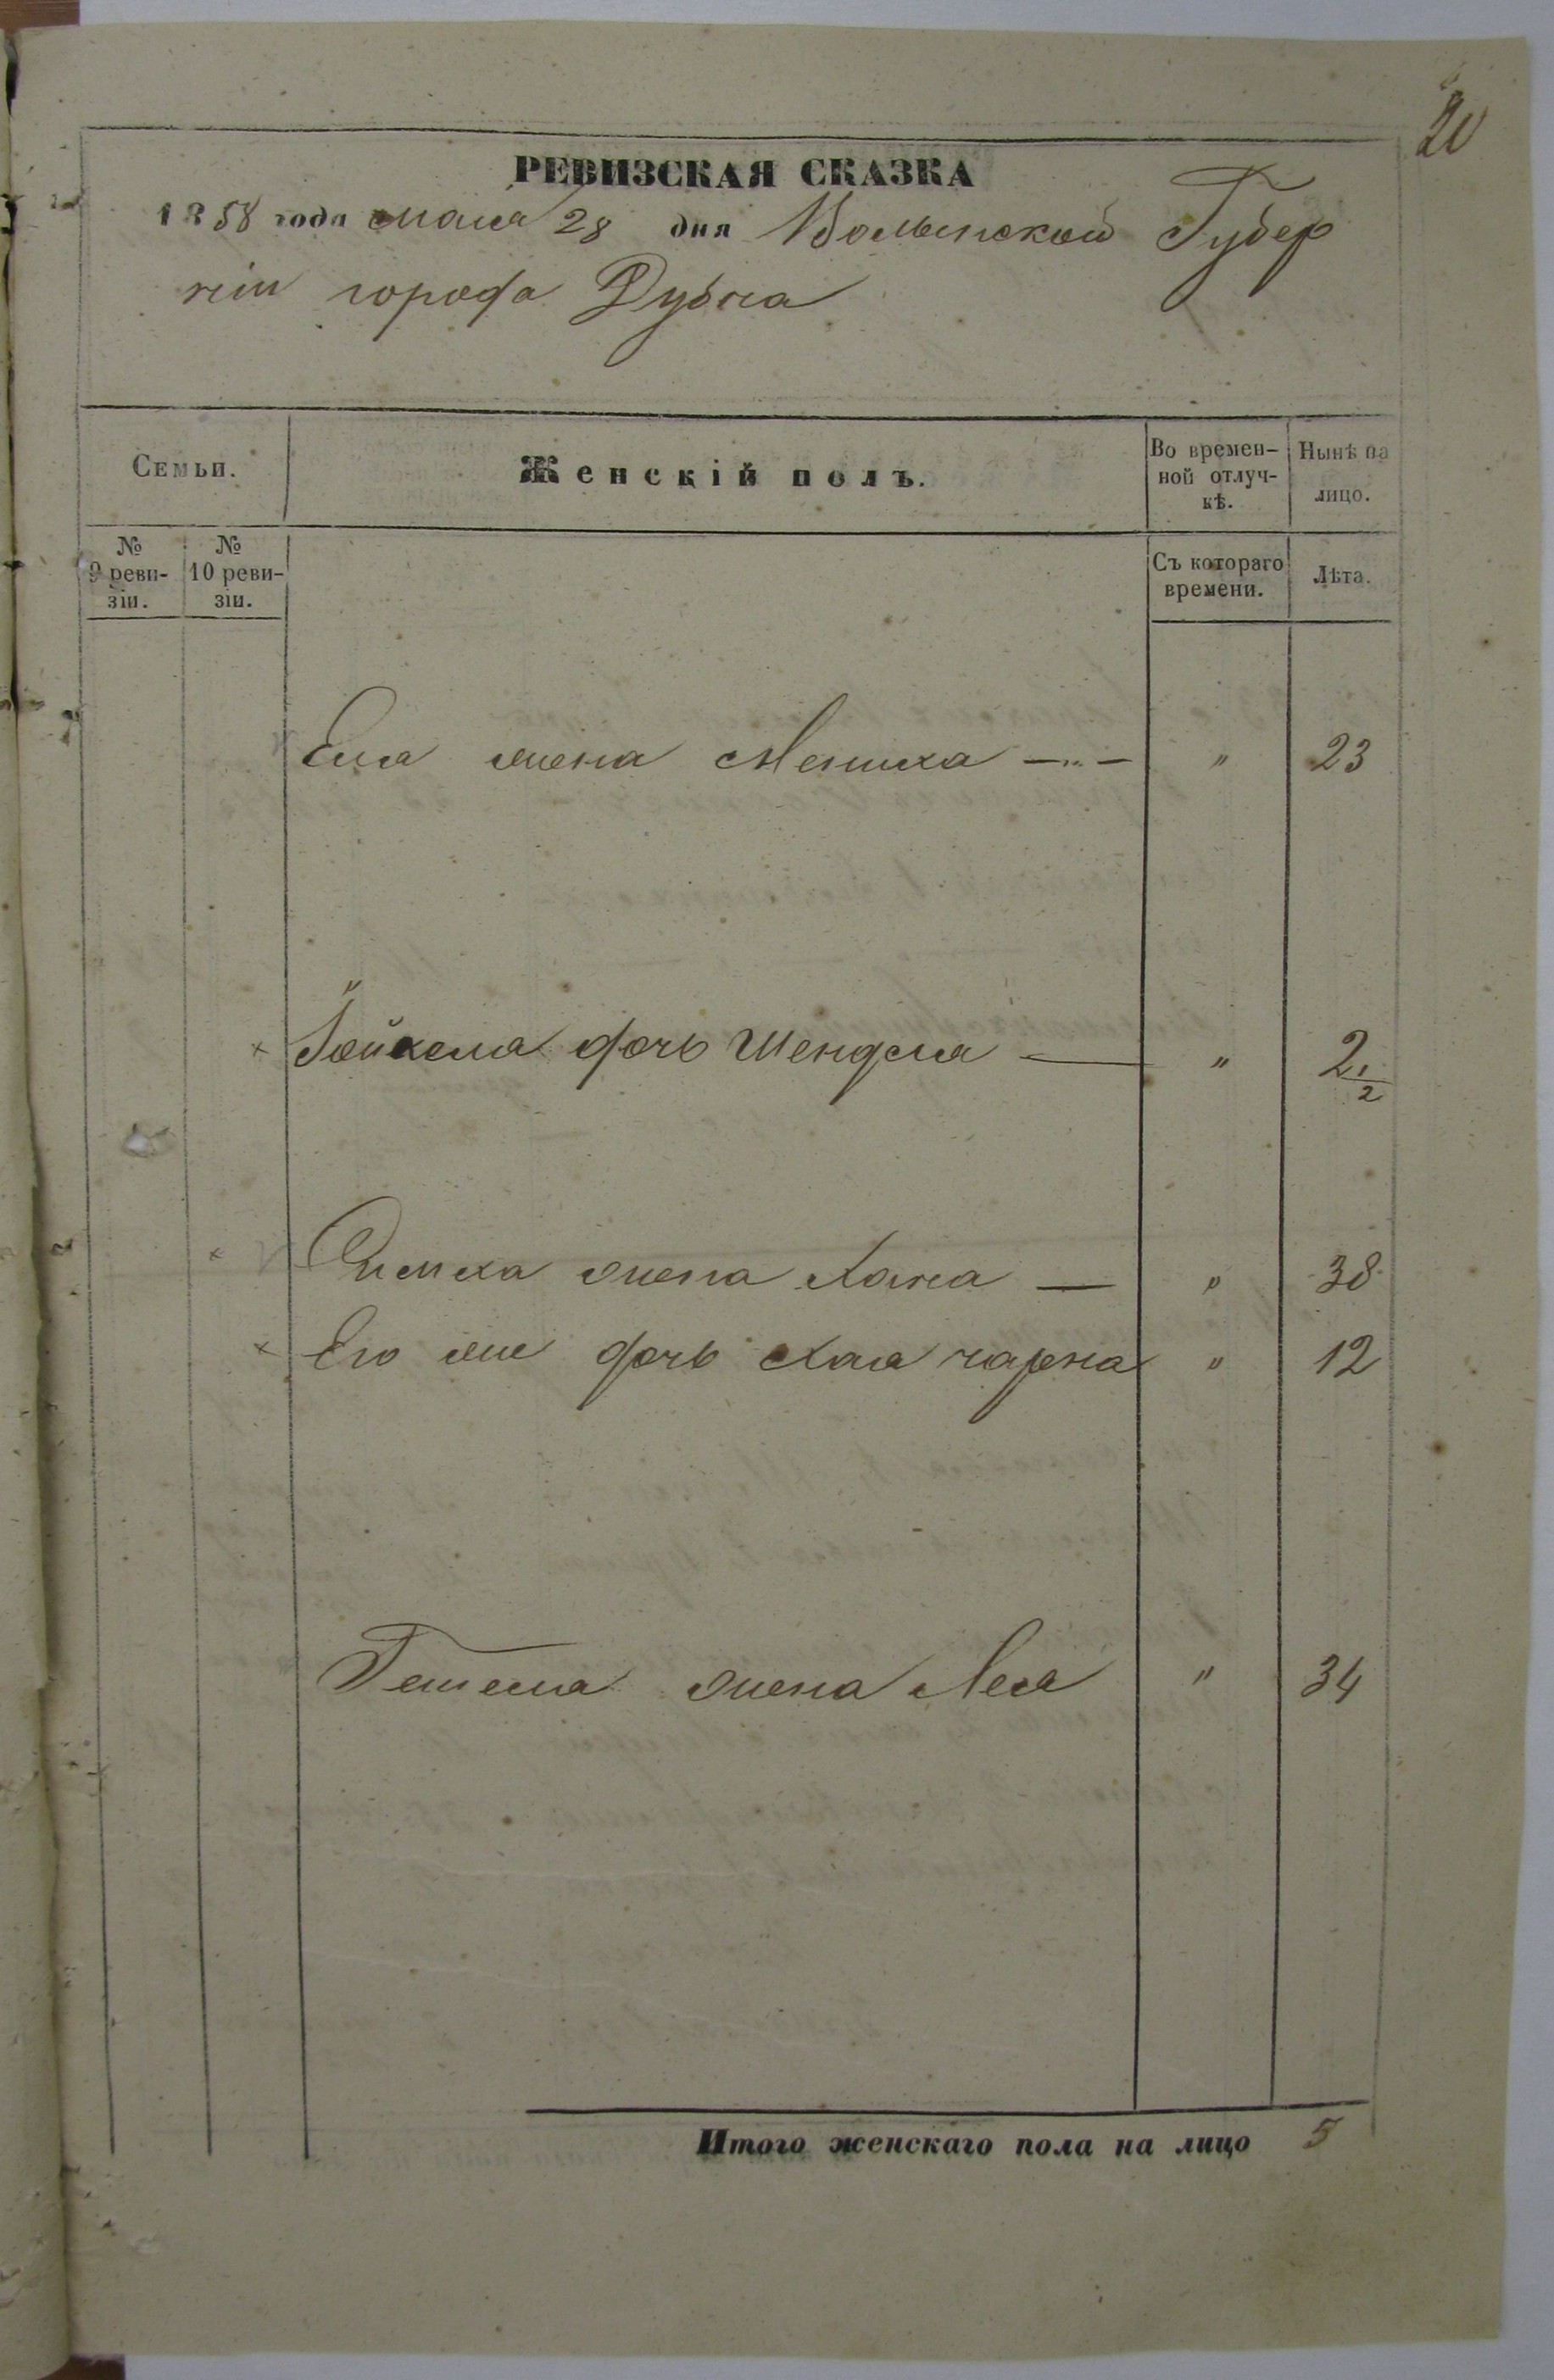 20
РЕВИЗСКАЯ СКАЗКА
1858 года мая 28 дня Волынской Губер
нии города Дубна
Семьи.
Женскій полъ.
Во времен-
ной отлуч-
кѣ.
Нынѣ на
лицо.
№
9 реви-
зіи.
№
10 реви-
зіи.
Съ котораго
времени.
Лѣта.
жена 〃 23
дочь Шендля 〃 2 1/2
Симха жена Хана 〃 38
Его же дочь Хая чарна 〃 12
жена Лея 〃 34
Итого женскаго пола на лицо 5